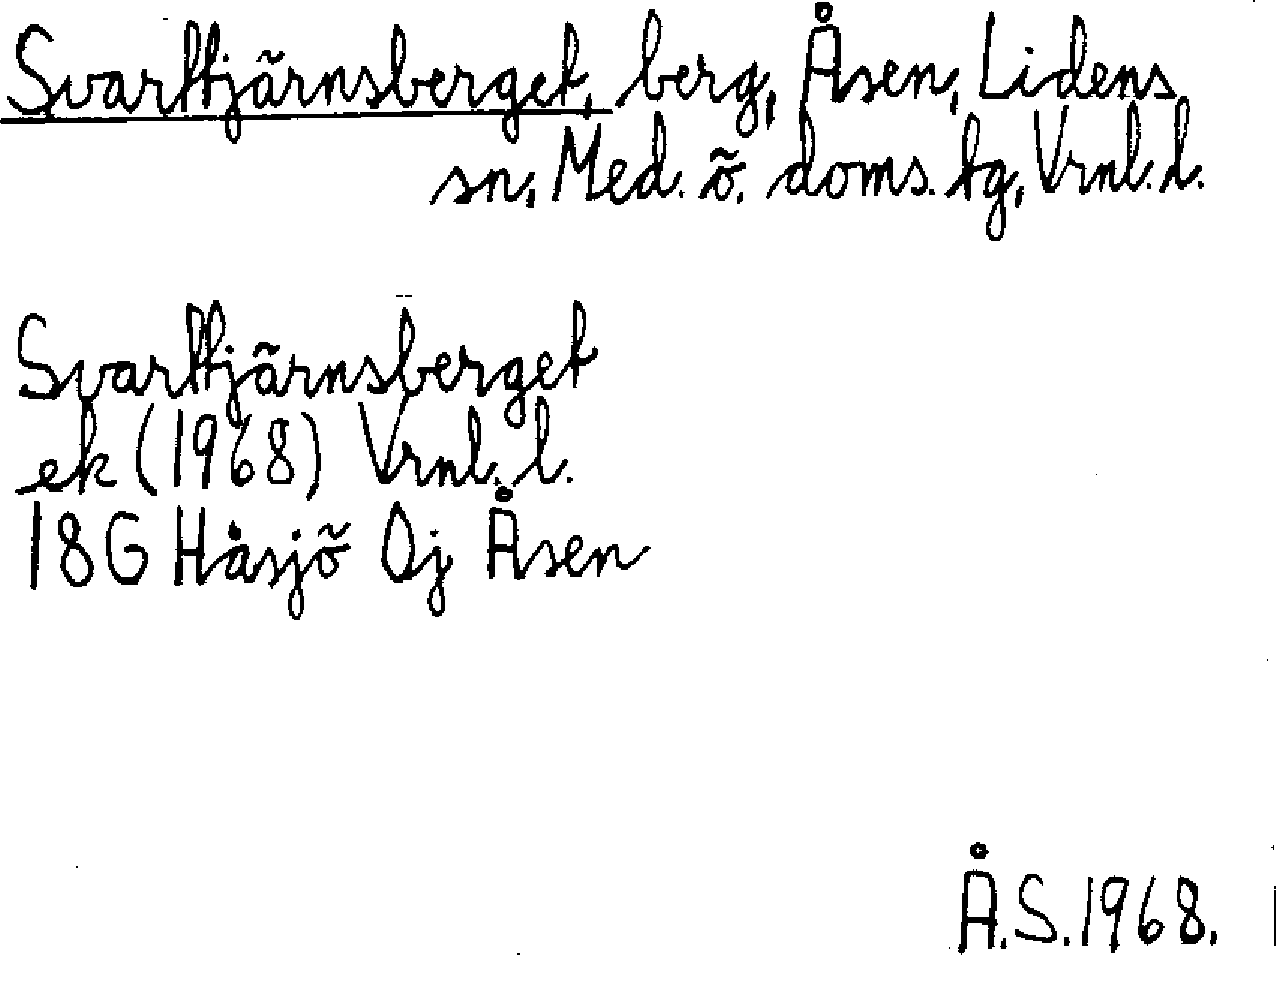 Svarttjärnsberget, berg, Åsen, Lidens
sn, Med. ö. doms. tg, Vrnl. l.
Svarttjärnsberget
ek (1968) Vrnl. l.
18G Håsjö 0j Åsen
Å.S. 1968.